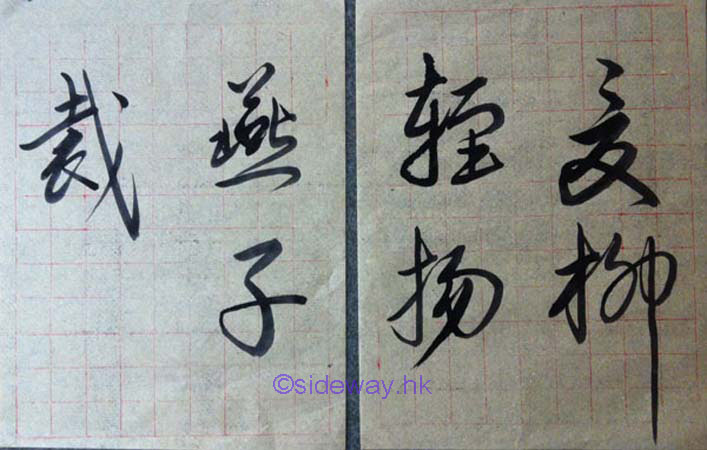 柳
輕揚
燕子
裁
©sideway.hk